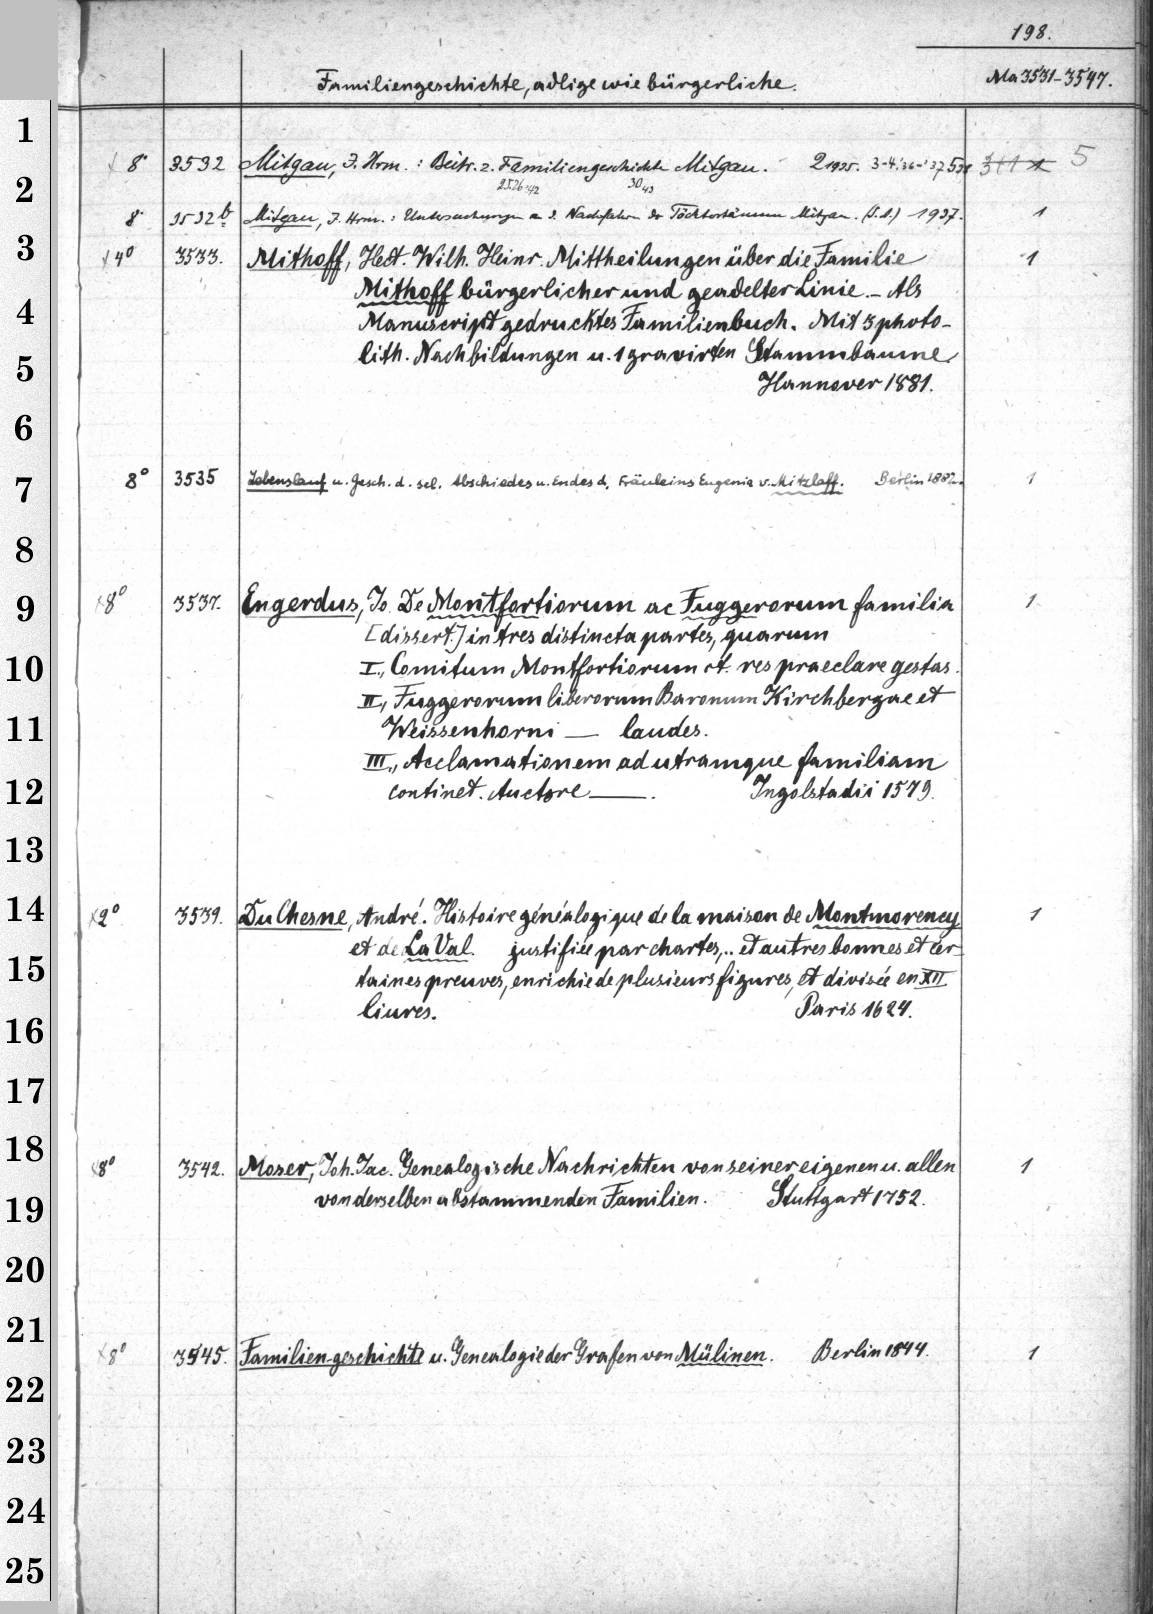 198.
Familiengeschichte, adlige wie bürgerliche. Ma 3531-3547.
1
8° 3532 Mitgau, J. Hrm.: Beitr. z. Familiengeschichte Mitgau. 2 1925. 3-4.'36-'37 5 5
2
8° 3532 b Mitgau, J. Hrm.: Untersuchungen a. d. Nachfahren der Töchterstämme Mitgau. (S.A.) 1937. 1
3
4° 3533. Mithoff, Hect. Wilh. Heinr. Mittheilungen über die Familie 1
Mithoff bürgerlicher und geadelter Linie. – Als
4
Manuscript gedrucktes Familienbuch. Mit 3 photo-
5
lith. Nachbildungen u. 1 gravirten Stammbaume.
Hannover 1881.
6
7
8° 3535 Lebenslauf u. Gesch. d. sel. Abschiedes u. Endes d. Fräuleins Eugenie v. Mitzlaff. Berlin 1 
8
9
8° 3537. Engerdus, Jo. De Montfortiorum ac Fuggerorum familia 1
[dissert.] in tres distincta partes, quarum
10
I., Comitum Montfortiorum et res praeclare gestas.
II., Fuggerorum liberorum Baronum Kirchbergae et
11
Weissenhorni — laudes.
III., Acclamationem ad utramque familiam
12
continet. Auctore —. Ingolstadii 1579.
13
14
2° 3539. Du Chesne, André. Histoire généalogique de la maison de Montmorency 1
et de La Val. justifiée par chartes,.. et autres bonnes et cer-
15
taines preuves, enrichie de plusieurs figures, et divisée en XII
16
livres. Paris 1624.
17
18
8° 3542. Moser, Joh. Jac. Genealogische Nachrichten von seiner eigenen u. allen 1
19
von derselben abstammenden Familien. Stuttgart 1752.
20
21
8° 3545. Familiengeschichte u. Genealogie der Grafen von Mülinen. Berlin 1844. 1
22
23
24
25